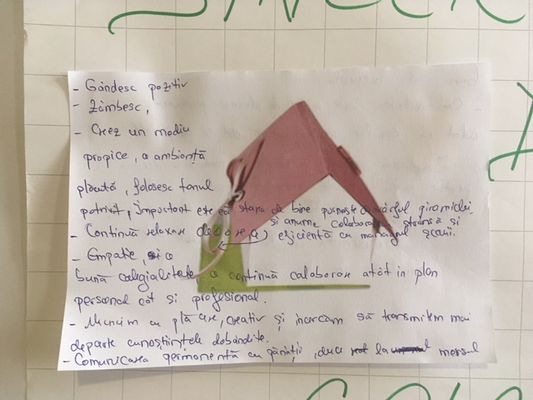 - Gândesc pozitiv
- Zâmbesc,
- Creez un mediu
propice, o ambianță
plăcută, folosesc tonul
potrivit, important este că starea de bine pornește din vârful piramidei
- Continuă relaxare de și anume, colaborare strânsă și
eficientă cu managerul școlii.
- Empatie, și o
bună colegialitate, o continuă colaborare atât în plan
personal cât și profesional.
- Muncim cu plăcere, creativ și încercăm să transmitem mai
departe cunoștințele dobândite.
- Comunicarea permanentă cu părinții, duce la mersul